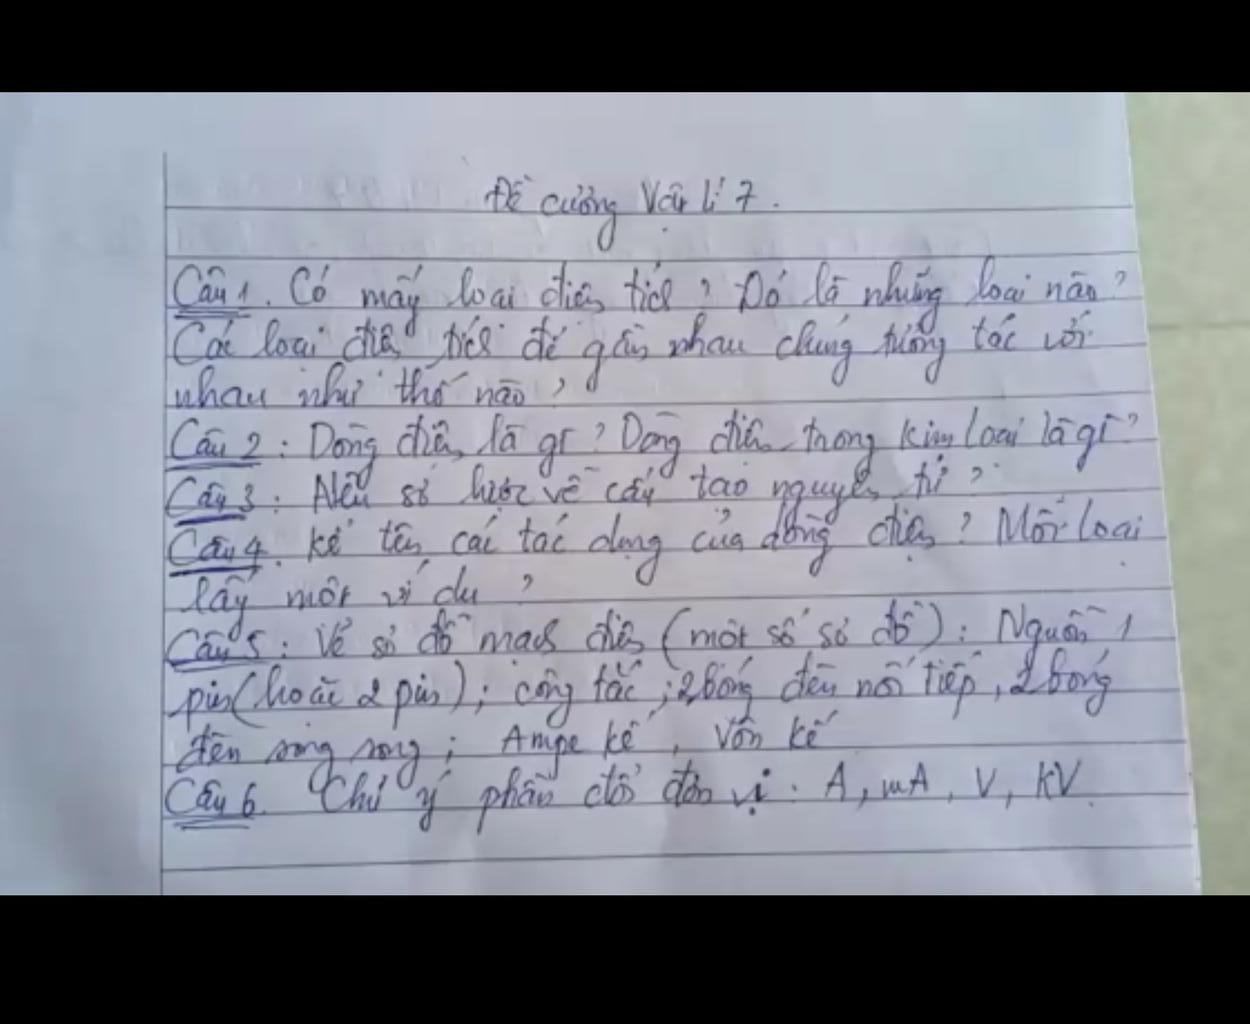 Đề cương Vật lí 7.
Câu 1. Có mấy loại điện tích? Đó là những loại nào?
Các loại điện tích để gần nhau chúng tương tác với
nhau như thế nào?
Câu 2: Dòng điện là gì? Dòng điện trong kim loại là gì?
Câu 3: Nêu sơ lược về cấu tạo nguyên tử?
Câu 4. Kể tên các tác dụng của dòng điện? Mỗi loại
lấy một ví dụ?
Câu 5: Vẽ sơ đồ mạch điện (một số sơ đồ): Nguồn 1
pin (hoặc 2 pin); công tắc; 2 bóng đèn nối tiếp, 2 bóng
đèn song song; Ampe kế, Vôn kế
Câu 6. Chú ý phần đổi đơn vị: A, mA, V, KV.